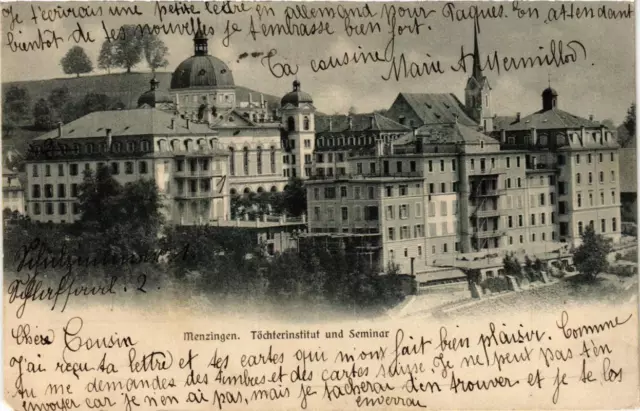 Je t'écrirai une petite lettre en allemand pour Pâques. En attendant
bientôt de tes nouvelles je t'embrasse bien fort.
Ta cousine Marie A. Vermillod
Menzingen. Töchterinstitut und Seminar
Chère Cousin
J'ai reçu ta lettre et tes cartes qui m'ont fait bien plaisir. Comme
tu me demandes des timbres et des cartes suisse. Je ne peut pas t'en
envoyer car je n'en ai pas, mais je tacherai d'en trouver et je te les
enverrau